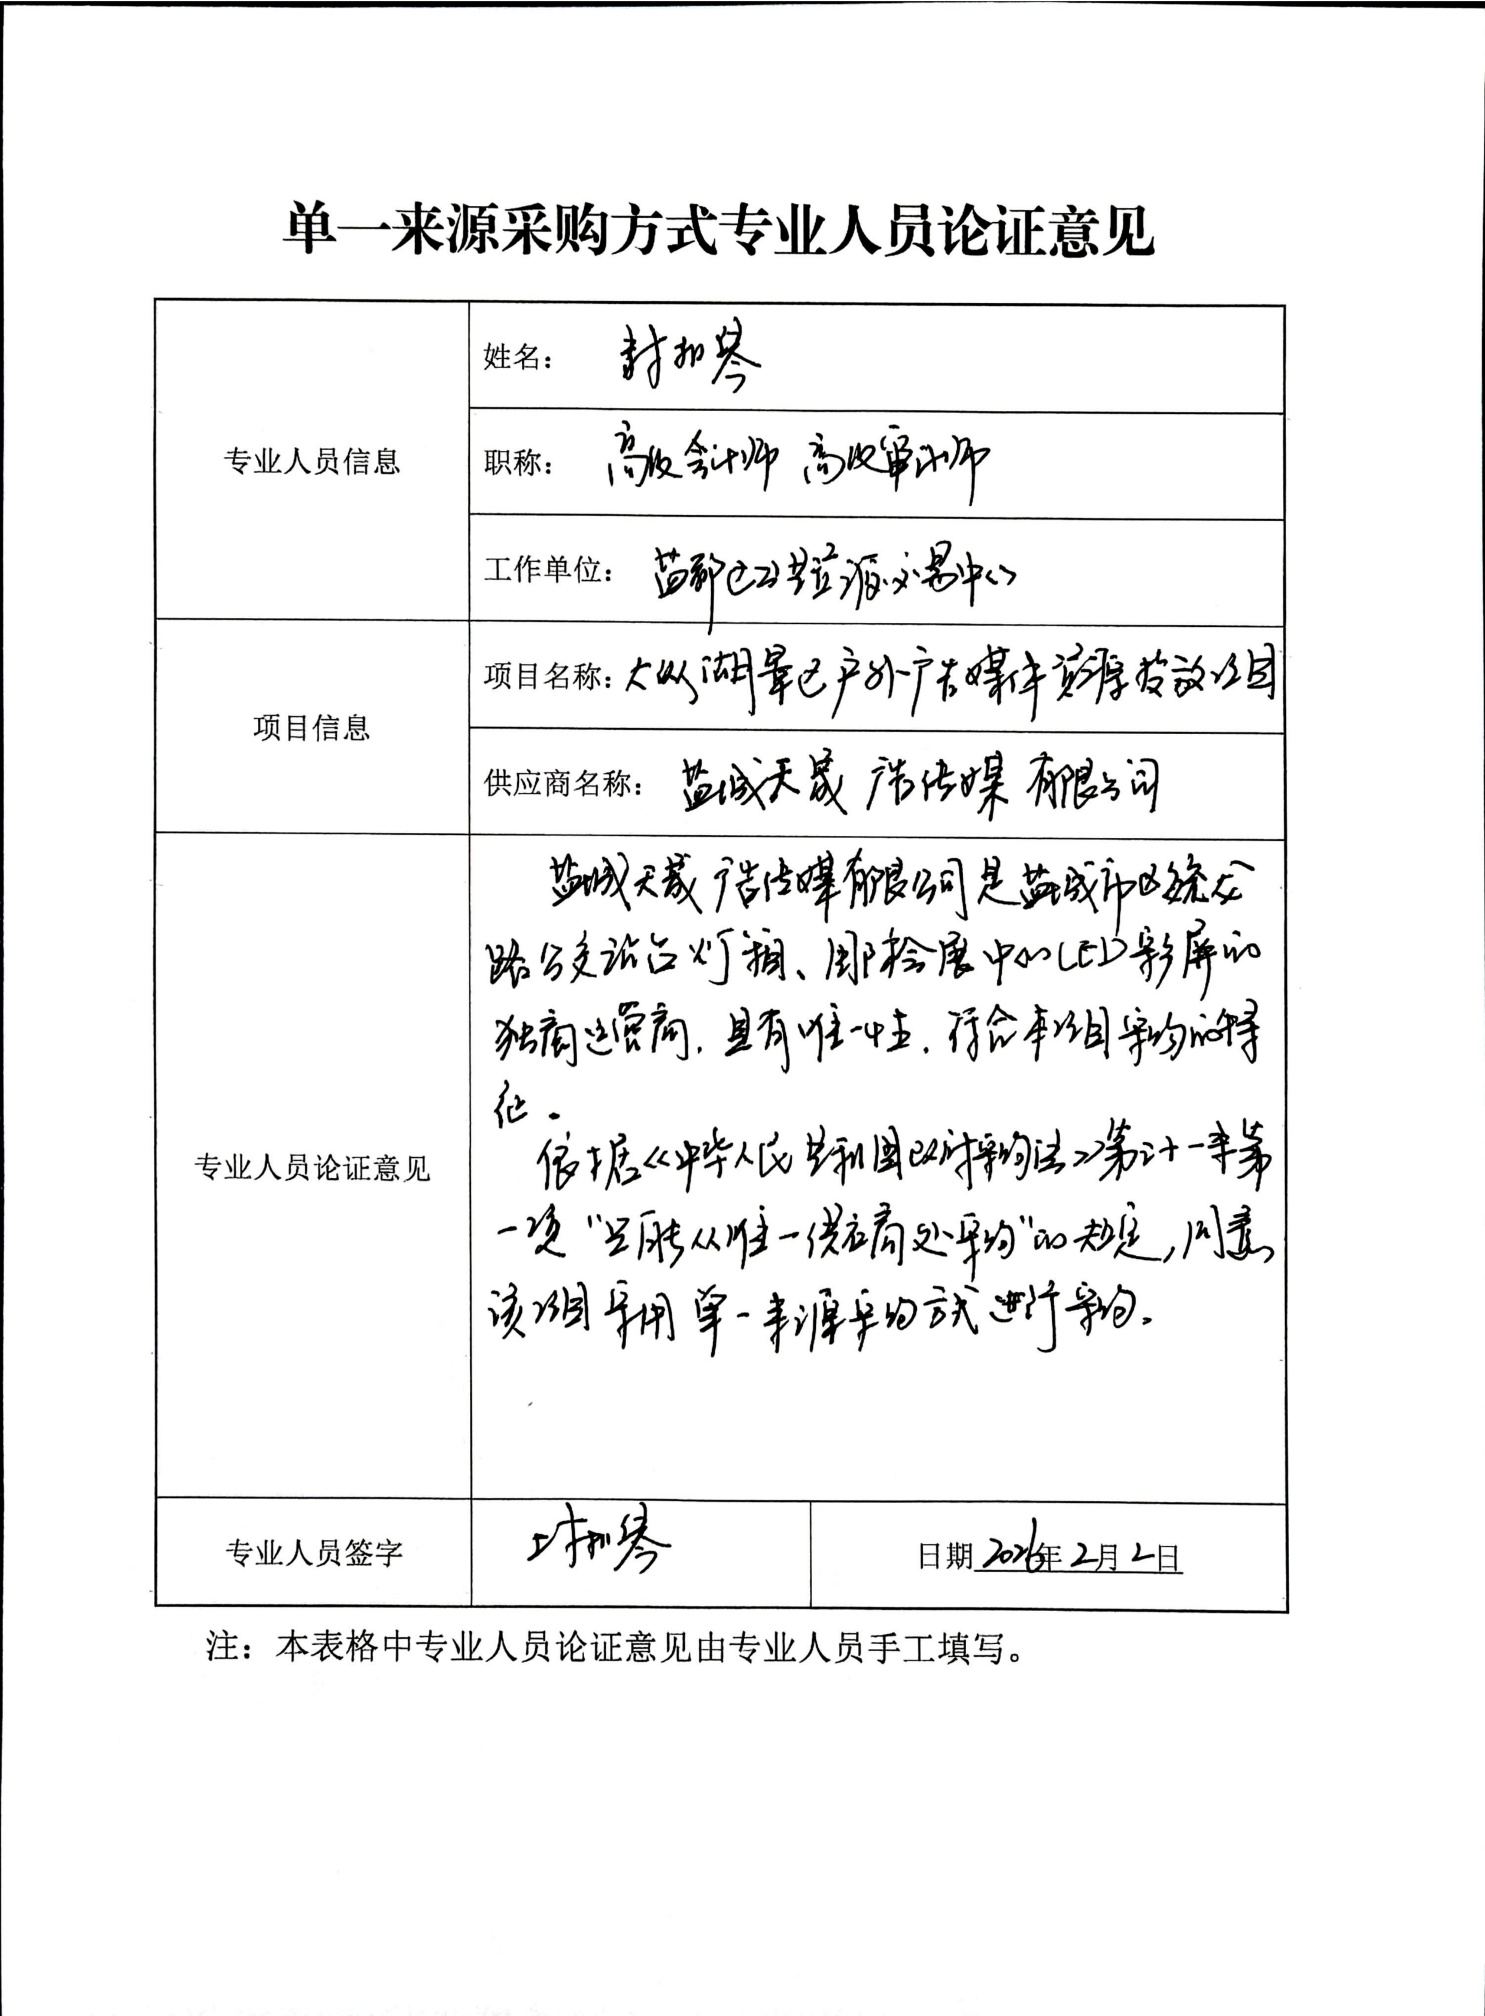 单一来源采购方式专业人员论证意见
专业人员信息
姓名： 封扣琴
职称： 高级会计师 高级审计师
工作单位： 盐都区公共资源交易中心
项目信息
项目名称：大纵湖景区户外广告媒体资源投放项目
供应商名称： 盐城天晟广告传媒有限公司
专业人员论证意见
盐城天晟广告传媒有限公司是盐城市区
路公交站台灯箱、国际会展中心LED彩屏的
独家运营商，具有唯一性，符合本项目采购的特
征。
依据《中华人民共和国政府采购法》第三十一条第
一项“只能从唯一供应商处采购”的规定，同意
该项目采用单一来源采购方式进行采购。
专业人员签字
封扣琴
日期 2026年2月2日
注：本表格中专业人员论证意见由专业人员手工填写。